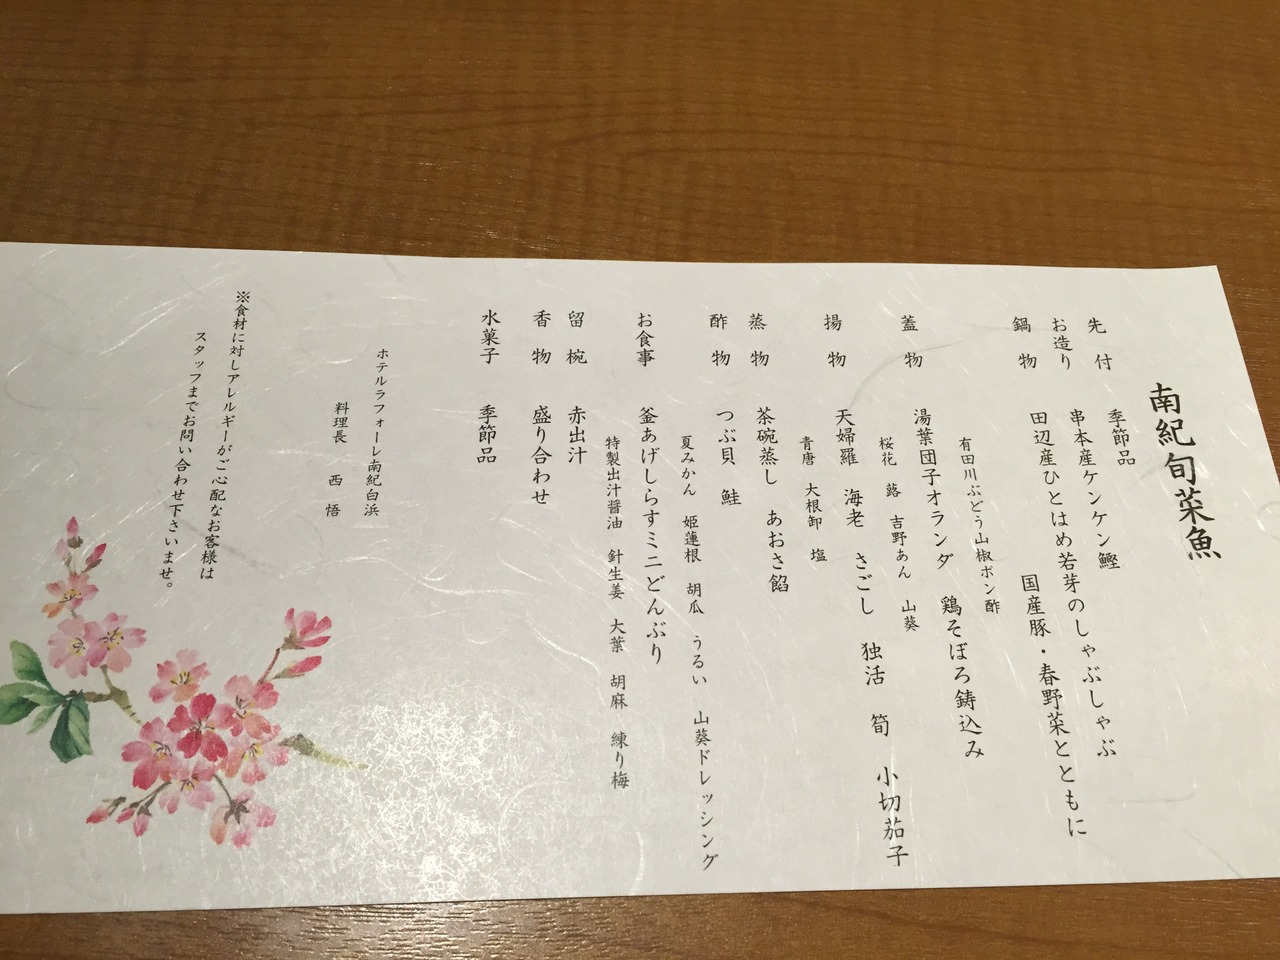 南紀旬菜魚
先付 季節品
お造り 串本産ケンケン鰹
鍋物 田辺産ひとはめ若芽のしゃぶしゃぶ
国産豚・春野菜とともに
有田川ぶどう山椒ポン酢
蓋物 湯葉団子オランダ 鶏そぼろ鋳込み
桜花 蕗 吉野あん 山葵
揚物 天婦羅 海老 さごし 独活 筍 小切茄子
青唐 大根卸 塩
蒸物 茶碗蒸し あおさ餡
酢物 つぶ貝 鮭
夏みかん 姫蓮根 胡瓜 うるい 山葵ドレッシング
お食事 釜あげしらすミニどんぶり
特製出汁醤油 針生姜 大葉 胡麻 練り梅
留椀 赤出汁
香物 盛り合わせ
水菓子 季節品
ホテルラフォーレ南紀白浜
料理長 西 悟
※食材に対しアレルギーがご心配なお客様は
スタッフまでお問い合わせ下さいませ。